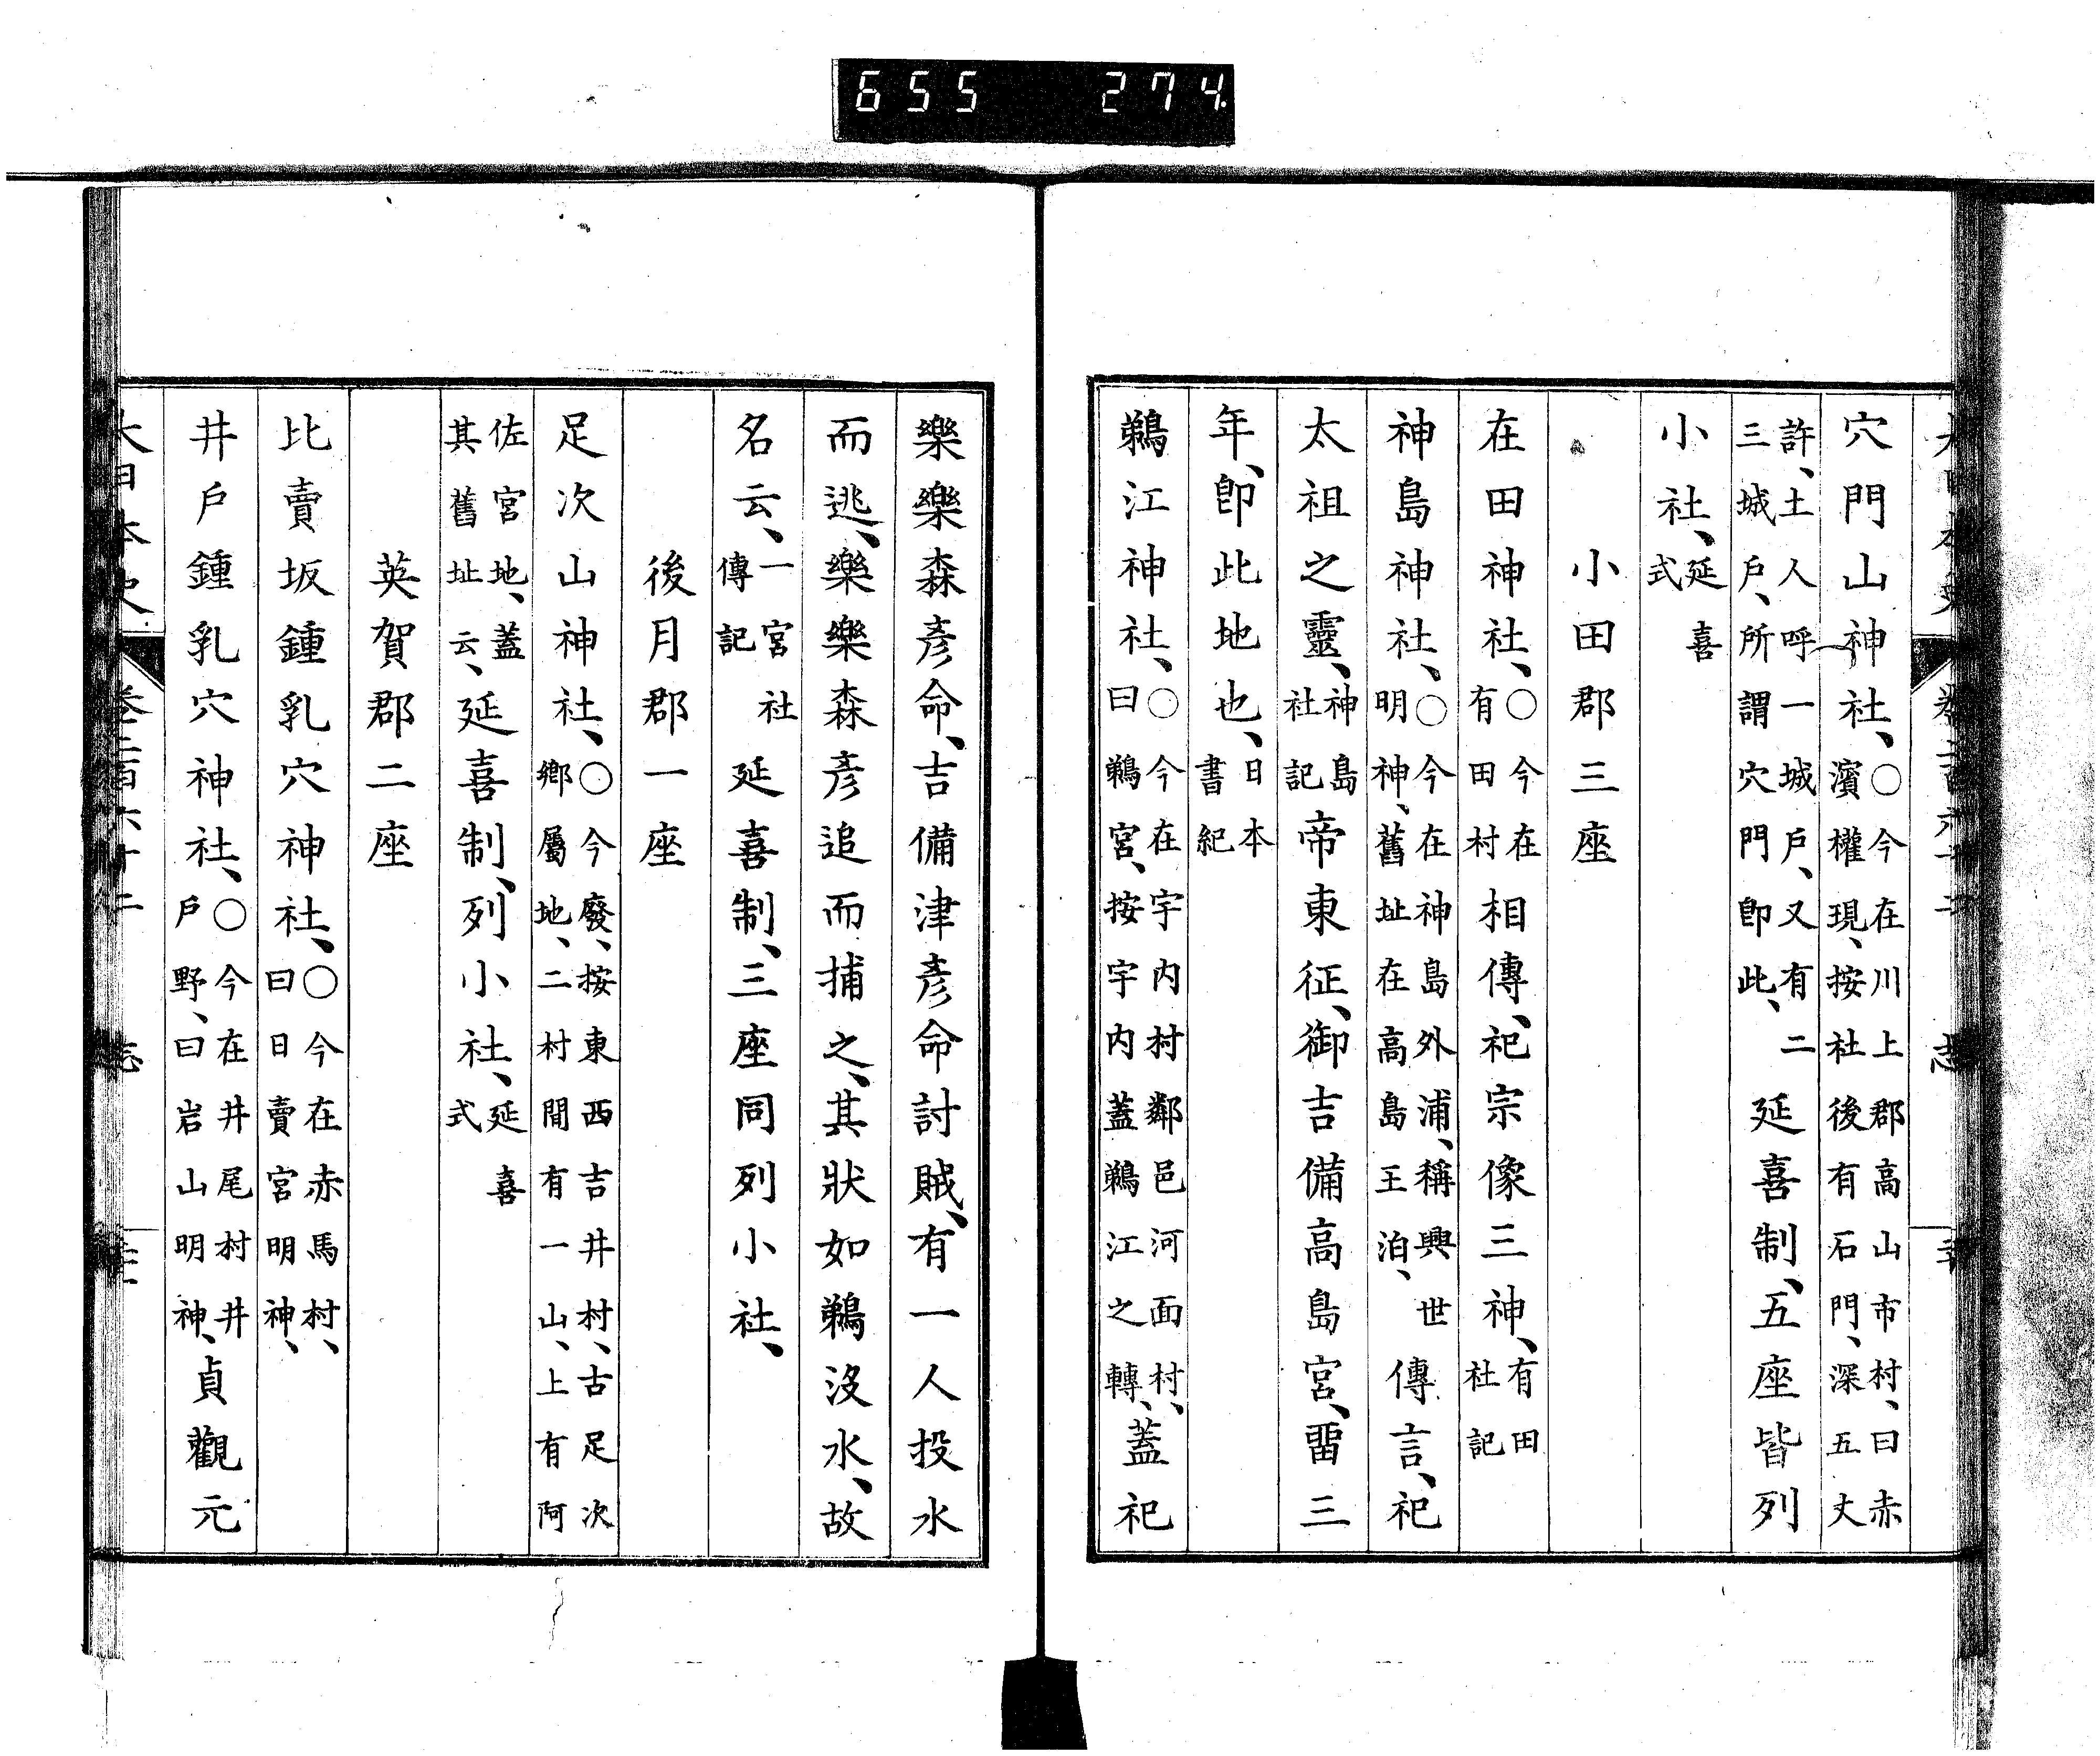 655 274
穴門山神社、○今在川上郡高山市村、曰赤濱權現、按社後有石門、深五丈
許、土人呼一城戶、又有二三城戶、所謂穴門卽此、延喜制、五座皆列
小社、延喜式
小田郡三座
在田神社、○今在有田村相傳、祀宗像三神、有田社記
神島神社、○今在神島外浦、稱興世明神、舊址在高島王泊、傳言、祀
太祖之靈、神島社記帝東征、御吉備高島宮、畱三
年、卽此地也、日本書紀
鵜江神社、○今在宇內村鄰邑河面村、曰鵜宮、按宇內蓋鵜江之轉、蓋祀
樂樂森彥命、吉備津彥命討賊、有一人投水
而逃、樂樂森彥追而捕之、其狀如鵜沒水、故
名云、一宮社傳記延喜制、三座同列小社、
後月郡一座
足次山神社、○今廢、按東西吉井村、古足次鄉屬地、二村間有一山、上有阿
佐宮地、蓋其舊址云、延喜制、列小社、延喜式
英賀郡二座
比賣坂鍾乳穴神社、○今在赤馬村、曰日賣宮明神、
井戶鍾乳穴神社、○今在井尾村井戶野、曰岩山明神、貞觀元
大日本史 卷二百六十二 志